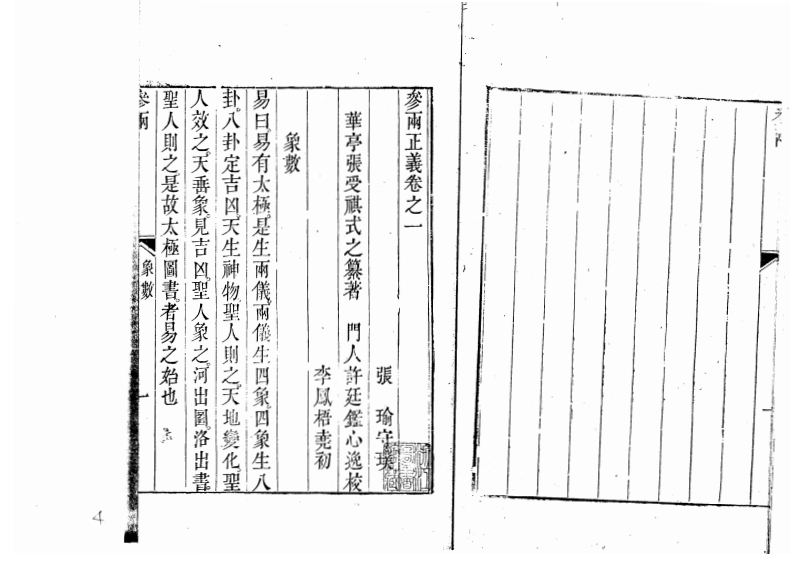 參兩正義卷之一
張　瑜守瑛
華亭張受祺式之纂著　門人許廷鑑心逸校
李鳳梧堯初
象數
易曰。易有太極。是生兩儀。兩儀生四象。四象生八
卦。八卦定吉凶。天生神物。聖人則之。天地變化。聖
人效之。天垂象。見吉凶。聖人象之。河出圖。洛出書。
聖人則之。是故太極圖書。者易之始也
參兩
象數
一
4